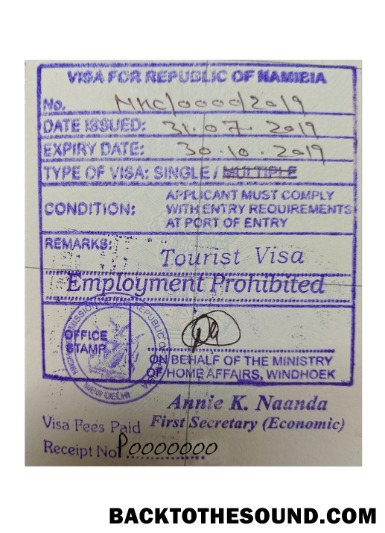 VISA FOR REPUBLIC OF NAMIBIA
No. NHC/0000/2019
DATE ISSUED: 31.07.2019
EXPIRY DATE: 30.10.2019
TYPE OF VISA: SINGLE / MULTIPLE
CONDITION: APPLICANT MUST COMPLY
WITH ENTRY REQUIREMENTS
AT PORT OF ENTRY
REMARKS: Tourist Visa
Employment Prohibited
OFFICE
STAMP
NEW DELHI
ON BEHALF OF THE MINISTRY
OF HOME AFFAIRS, WINDHOEK
Annie K. Naanda
Visa Fees Paid First Secretary (Economic)
Receipt No P0000000
BACKTOTHESOUND.COM